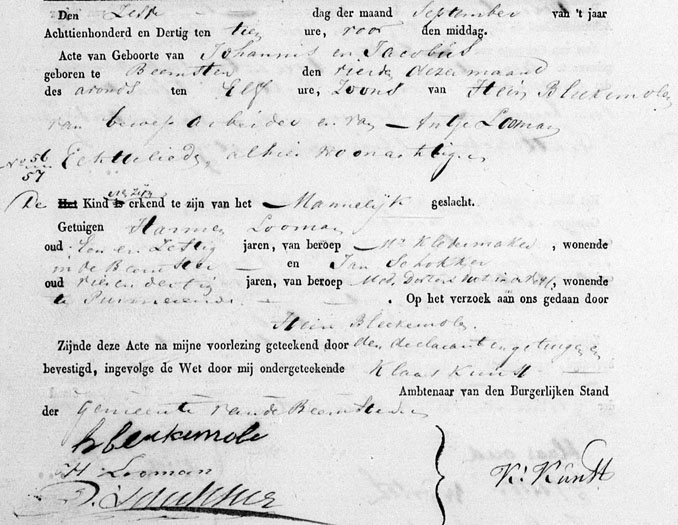 Den Zesde dag der maand September van 't jaar
Achttienhonderd en Dertig ten tien ure, voor den middag.
Acte van Geboorte van Johannis en Jacobus
geboren te Beemster den vierde dezer maand
des avonds ten Elf ure, Zoons van Hein Bleekemolen
van beroep arbeider en van Antje Looman
No 56
57
Echtelieden alhier woonachtig
De Het Kind is zijn erkend te zijn van het Mannelijk geslacht.
Getuigen Harmen Looman
oud Een en Zestig jaren, van beroep Mr Kledermaker, wonende
in de Beemster en Jan Schokker
oud vier en dertig jaren, van beroep Med. Doctor, wonende
te Purmerende Op het verzoek aan ons gedaan door
Hein Bleekemolen.
Zijnde deze Acte na mijne voorlezing geteekend door den declarant en getuigen en
bevestigd, ingevolge de Wet door mij ondergeteekende Klaas Kunst
Ambtenaar van den Burgerlijken Stand
der Gemeente van de Beemster
h bleekemole
H Looman
K: Kunst